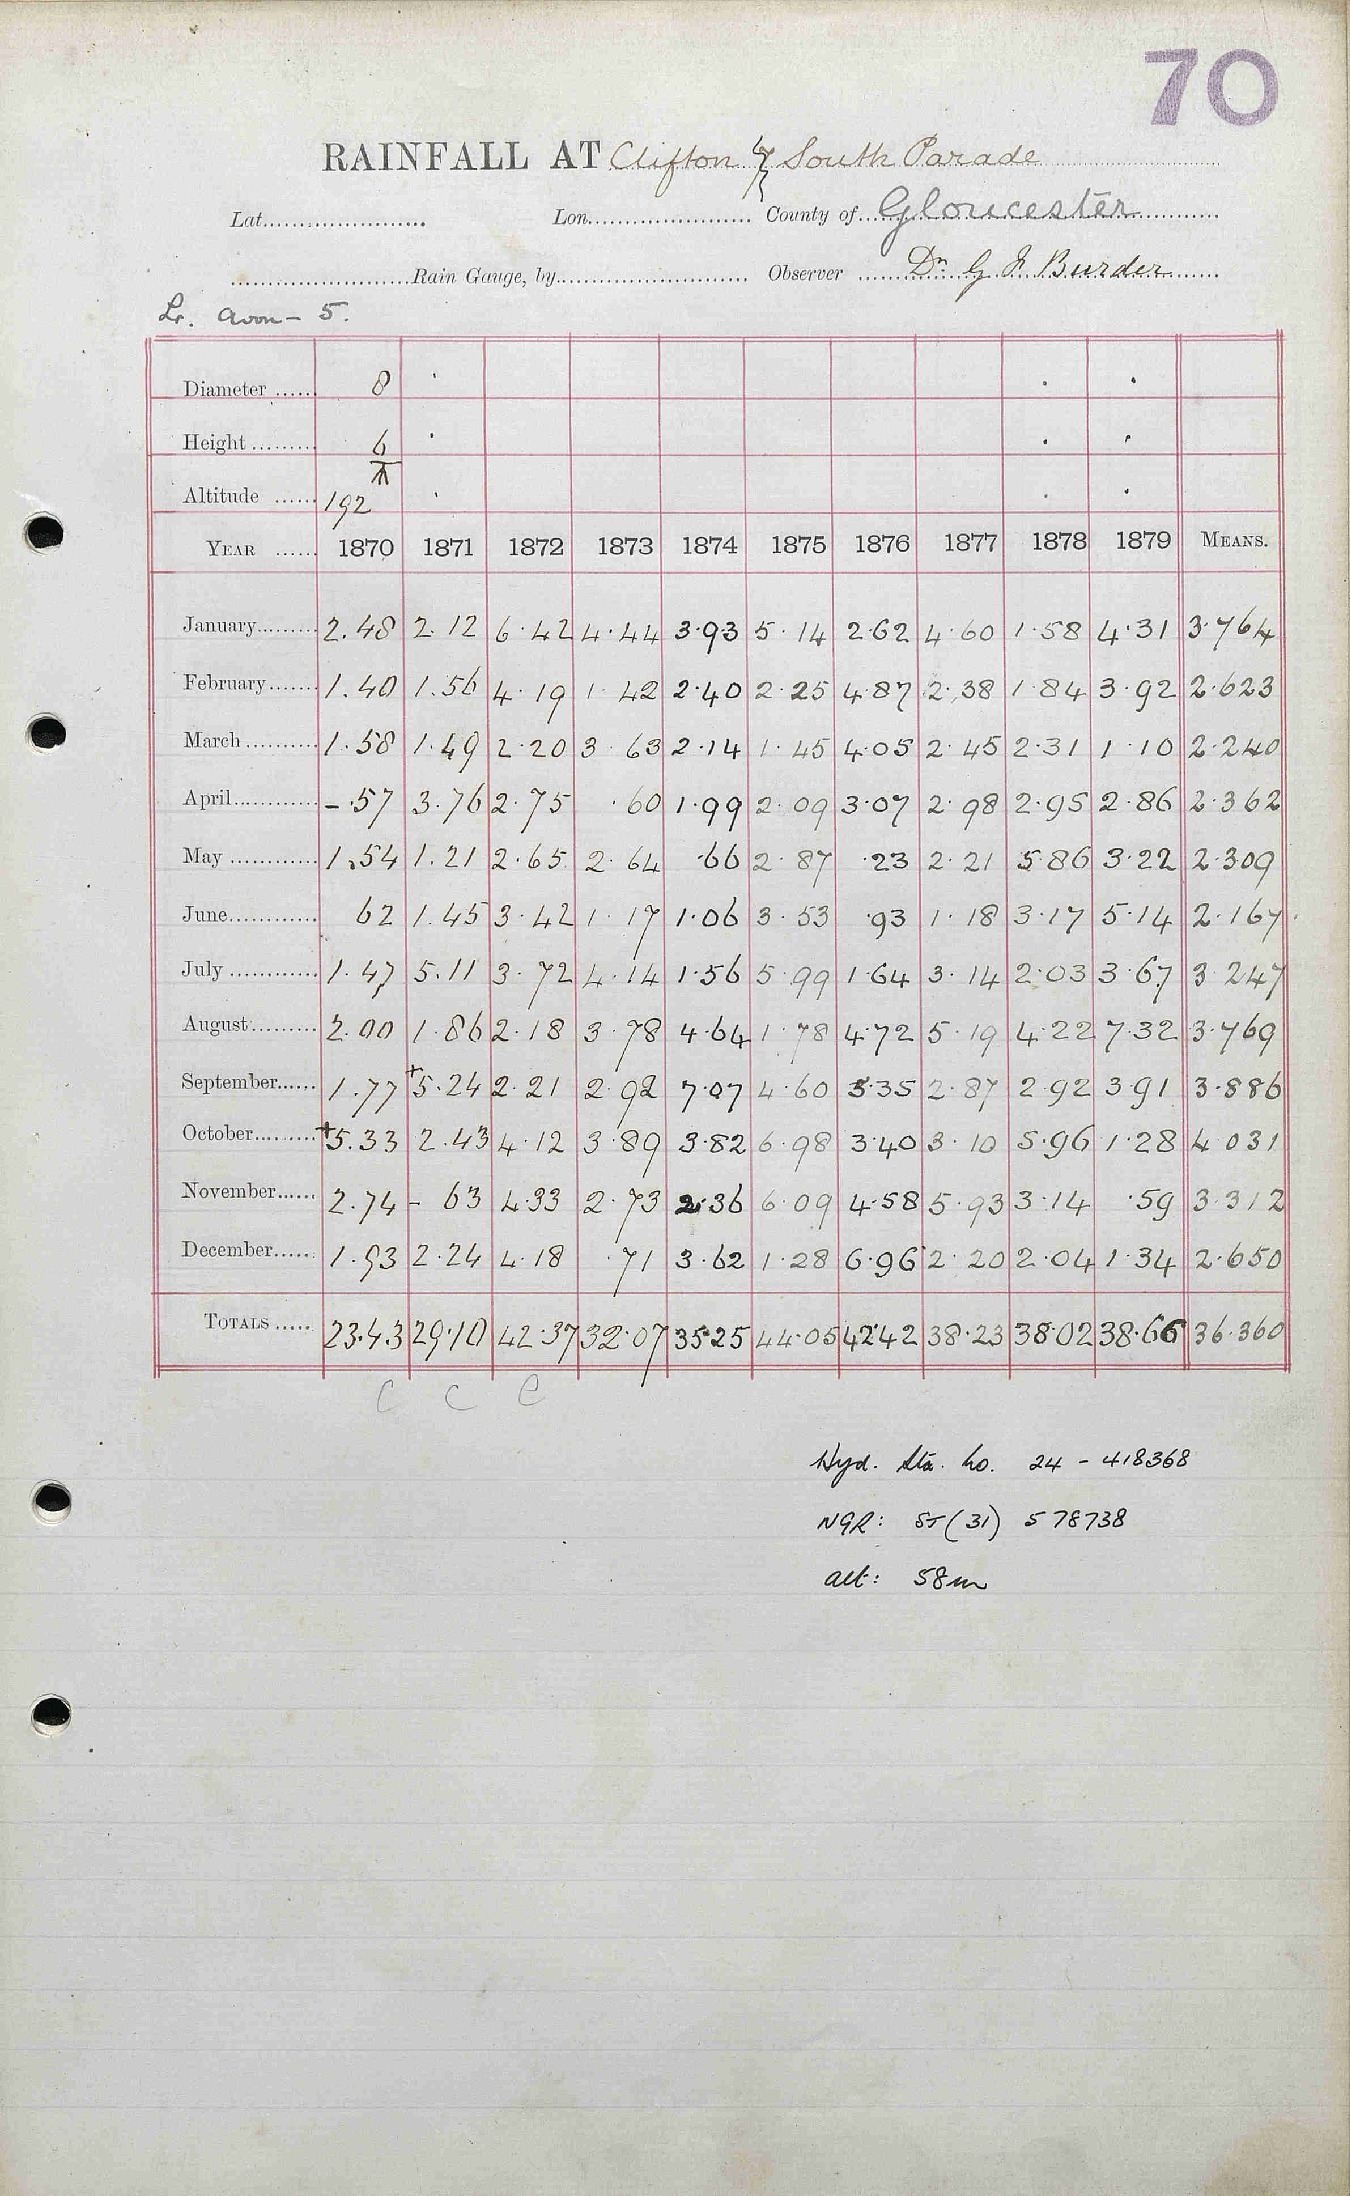 70
RAINFALL AT Clifton 7 South Parade
Lat. Lon. County of Gloucester
Rain Gauge, by Observer Dr. G F Burder
Lr. Avon - 5.
Diameter 8
Height 6
Altitude 192
YEAR 1870 1871 1872 1873 1874 1875 1876 1877 1878 1879 MEANS.
January 2.48 2.12 6.42 4.44 3.93 5.14 2.62 4.60 1.58 4.31 3.764
February 1.40 1.56 4.19 1.42 2.40 2.25 4.87 2.38 1.84 3.92 2.623
March 1.58 1.49 2.20 3.63 2.14 1.45 4.05 2.45 2.31 1.10 2.240
April -.57 3.76 2.75 .60 1.99 2.09 3.07 2.98 2.95 2.86 2.362
May 1.54 1.21 2.65 2.64 .66 2.87 .23 2.21 5.86 3.22 2.309
June 62 1.45 3.42 1.17 1.06 3.53 .93 1.18 3.17 5.14 2.167
July 1.47 5.11 3.72 4.14 1.56 5.99 1.64 3.14 2.03 3.67 3.247
August 2.00 1.86 2.18 3.78 4.64 1.78 4.72 5.19 4.22 7.32 3.769
September 1.77 +5.24 2.21 2.92 7.07 4.60 5.35 2.87 2.92 3.91 3.886
October +5.33 2.43 4.12 3.89 3.82 6.98 3.40 3.10 5.96 1.28 4.031
November 2.74 - 63 4.33 2.73 2.36 6.09 4.58 5.93 3.14 .59 3.312
December 1.93 2.24 4.18 .71 3.62 1.28 6.96 2.20 2.04 1.34 2.650
TOTALS 23.43 29.10 42.37 32.07 35.25 44.05 42.42 38.23 38.02 38.66 36.360
C C C
Hyd. Sta. No. 24 - 418368
NGR: ST (31) 578738
alt: 58m